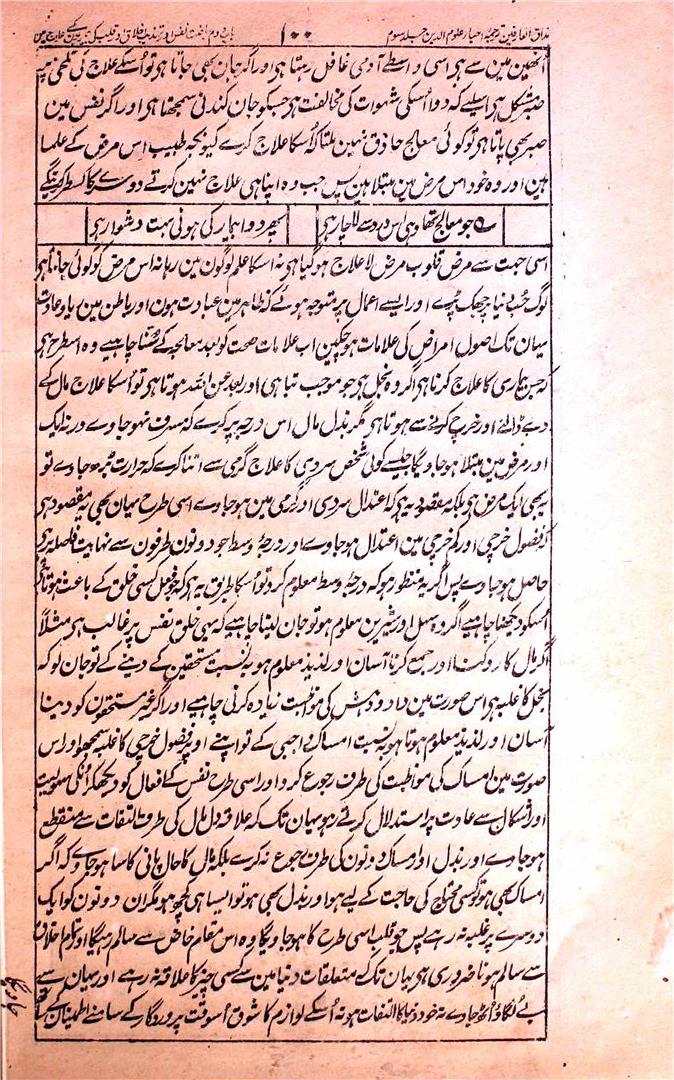 مذاق العارفین ترجمۂ احیاء علوم الدین جلد سوم ۱۰۰ باب دوم
انھین مین سے ہی اسی واسطے آدمی غافل رہتا ہی اور اگر جان بھی جاتا ہی تو اُسکے علاج کی تلخی پر
صبر مشکل ہی اسلیے کہ دوا اُسکی شہوات کی مخالفت ہی جسکو جان کندنی سمجھتا ہی اور اگر نفس مین
صبر بھی پاتا ہی تو کوئی معالج حاذق نہین ملتا کہ اُسکا علاج کرے کیونکہ طبیب اس مرض کے علما
ہین اور وہ خود اس مرض مین مبتلا ہین پس جب وہ اپنا ہی علاج نہین کرتے دوسرے کا کسطرح کرینگے
جو معالج تھا وہی اس درد سے لاچار ہی پھر دوا بیمار کی ہونی بہت دشوار ہی
اسی جہت سے مرض قلوب مرض لاعلاج ہو گیا ہی نہ اسکا علم لوگون مین رہا نہ اس مرض کو کوئی جانتا ہی
لوگ حُبّ دنیا پر جھک پڑے اور ایسے اعمال پر متوجہ ہوئے کہ ظاہر مین عبادت ہون اور باطن مین ریا و عادت
یہان تک اصول امراض کی علامات ہو چکین اب علامات صحت کو بعد معالجہ کے سُننا چاہیے وہ اسطرح ہی
کہ جس بیماری کا علاج کرنا ہی اگر وہ بخل ہی جو موجب تباہی اور بعد عن اللہ ہوتا ہی تو اُسکا علاج مال کے
دے ڈالنے اور خرچ کرنے سے ہوتا ہی مگر بذل مال اس درجہ پر کرے کہ مسرف نہو جاوے ورنہ ایک
اور مرض مین مبتلا ہو جاویگا جیسے کوئی شخص سردی کا علاج گرمی سے اتنا کرے کہ حرارت بڑھ جاوے تو
یہ بھی ایک مرض ہی بلکہ مقصود یہ ہی کہ اعتدال سردی اور گرمی مین ہو جاوے اسی طرح یہان بھی یہ مقصود ہی
کہ فضول خرچی اور کم خرچی مین اعتدال ہو جاوے اور درجۂ وسط جو دونون طرفون سے نہایت فاصلہ پر ہی
حاصل ہو جاوے پس اگر یہ منظور ہو کہ درجۂ وسط معلوم کرو تو اُسکا طریق یہ ہی کہ جو فعل کسی خلق کے باعث ہوتا ہی
اُسکو دیکھنا چاہیے اگر وہ سہل اور شیرین معلوم ہو تو جان لینا چاہیے کہ یہی خلق نفس پر غالب ہی مثلاً
اگر مال کا روکنا اور جمع کرنا آسان اور لذیذ معلوم ہو بہ نسبت مستحقین کے دینے کے تو جان لو کہ
بخل کا غلبہ ہی اس صورت مین داد و دہش کی مواظبت زیادہ کرنی چاہیے اور اگر غیر مستحقون کو دینا
آسان اور لذیذ معلوم ہوتا ہو بہ نسبت امساک واجبی کے تو اپنے اوپر فضول خرچی کا غلبہ سمجھو اور اس
صورت مین امساک کی مواظبت کی طرف رجوع کرو اور اسی طرح نفس کے افعال کو دیکھکر اُنکی سہولیت
اور اشکال سے عادت پر استدلال کرتے رہو یہان تک کہ علاقہ دل مال کی طرف التفات سے منقطع
ہو جاوے اور بذل اور امساک دونون کی طرف رجوع نہ کرے بلکہ مال کا حال پانی کا سا ہو جاوے کہ اگر
امساک بھی ہو تو کسی محتاج کی حاجت کے لیے ہو اور بذل بھی ہو تو ایسا ہی کچھ ہو مگر ان دونون کو ایک
دوسرے پر غلبہ نہ رہے پس جو قلب اسی طرح کا ہو جاویگا وہ اس مقام خاص سے سالم رہیگا اور تمام اخلاق
سے سالم ہونا ضروری ہی یہان تک کہ متعلقات دنیا مین سے کسی چیز کا علاقہ نہ رہے اور یہان سے
بے لگاؤ اُٹھ جاوے نہ خود دنیا کا التفات ہو نہ اُسکے لوازم کا شوق اُسوقت پروردگار کے سامنے اطمینان کے